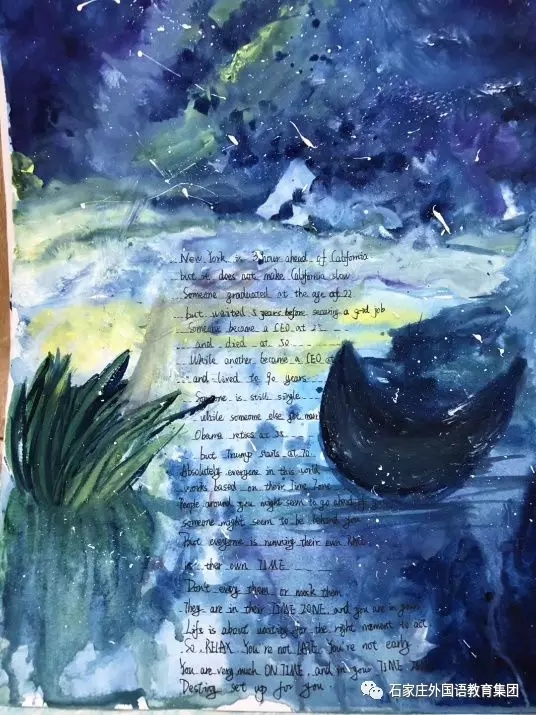 New York is 3 hour ahead of California
but it does not make California slow
Someone graduated at the age of 22
but waited 5 years before securing a good job
Someone became a CEO at 25
and died at 50
While another became a CEO at
and lived to 90 years
Someone is still single
while someone else got
Obama retires at 55
but Trump starts at 70
Absolutely everyone in this world
works based on their Time Zone
People around you might seem to go ahead of
someone might seem to be behind you
But everyone is running their own
in their own TIME
Don't envy them or mock them
They are in their TIME ZONE, and you are in yours
Life is about waiting for the right moment to act
So RELAX You're not LATE You're not early
You are very much ON TIME, and in your TIME
Destiny set up for you
石家庄外国语教育集团